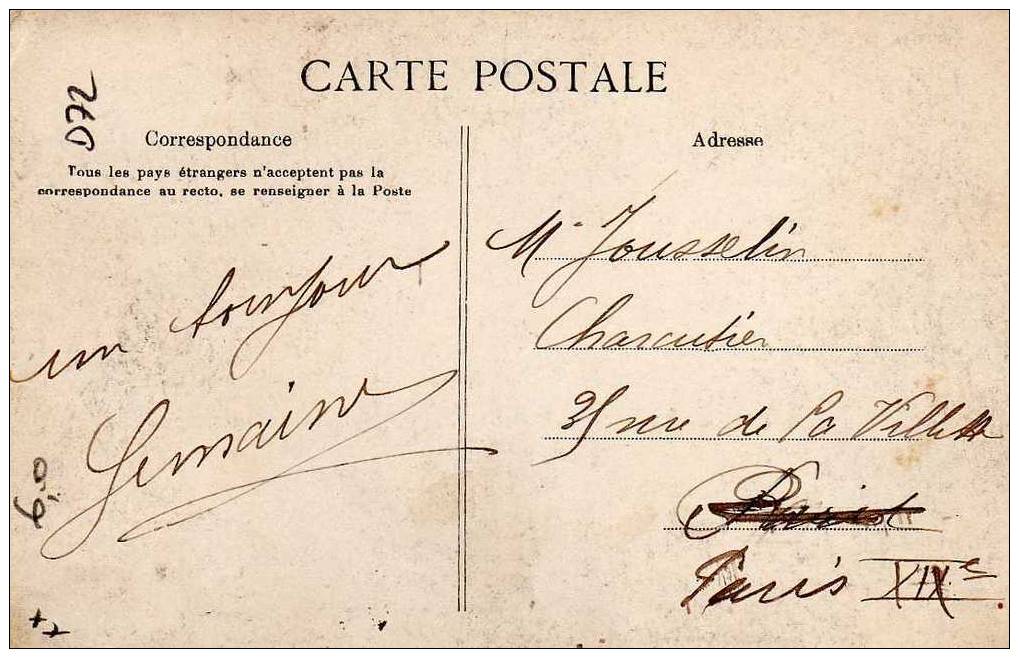 CARTE POSTALE
Correspondance
Tous les pays étrangers n'acceptent pas la
correspondance au recto, se renseigner à la Poste
un bonjour
Germaine
Adresse
Mr Jousselin
Charcutier
35 rue de La Villette
Paris
Paris XIXe